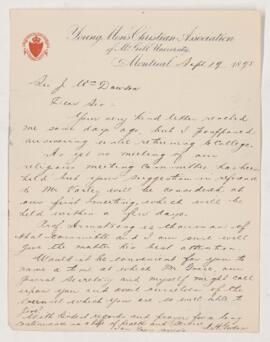 Young Men's Christian Association
of McGill University.
Montreal Sept. 19, 1895
Sir J. Wm Dawson
Dear Sir:-
Your very kind letter reached
me some days ago, but I deferred
answering until returning to College.
As yet no meeting of our
religious meeting Committee has been
held but your suggestion in regard
to Mr. will be considered at
our first meeting, which will be
held within a few days.
Prof. Armstrong is chairman of
that committee and I am sure will
give the matter his best attention.
Would it be convenient for you to
name a time at which Mr. our
General Secretary and myself might call
upon you and avail ourselves of the
counsel which you are so well able to
give?
With kindest regards and prayer for a long
continuance in a life of health and